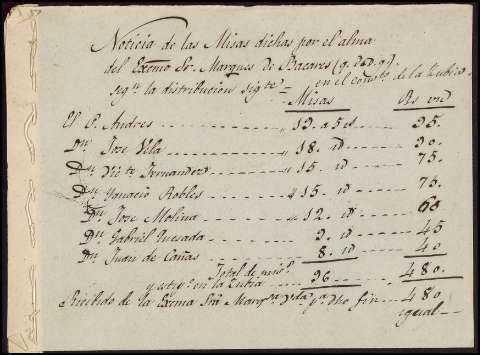 Noticia de las Misas dichas por el alma
del Exmo Sr. Marques di Bacares (q. D. D. g).
segn la distribucion sigte = en el convto de la Zubia.
Misas Rs vn
El P. Andres 19. a 5 rs 95.
Dn. Jose Vela 18. id 90.
Dn. Victe Fernandez 15. id 75.
Dn. Ygnacio Robles 15. id 75.
Dn. Jose Molina 12. id 60
Dn. Gabriel Quesada 9. id 45
Dn. Juan de Cañas 8. id 40
Total de
y en la Zubia 96 480.
Recibido de la Exma Sra Marqsa Vda pa. dho fin 480
igual